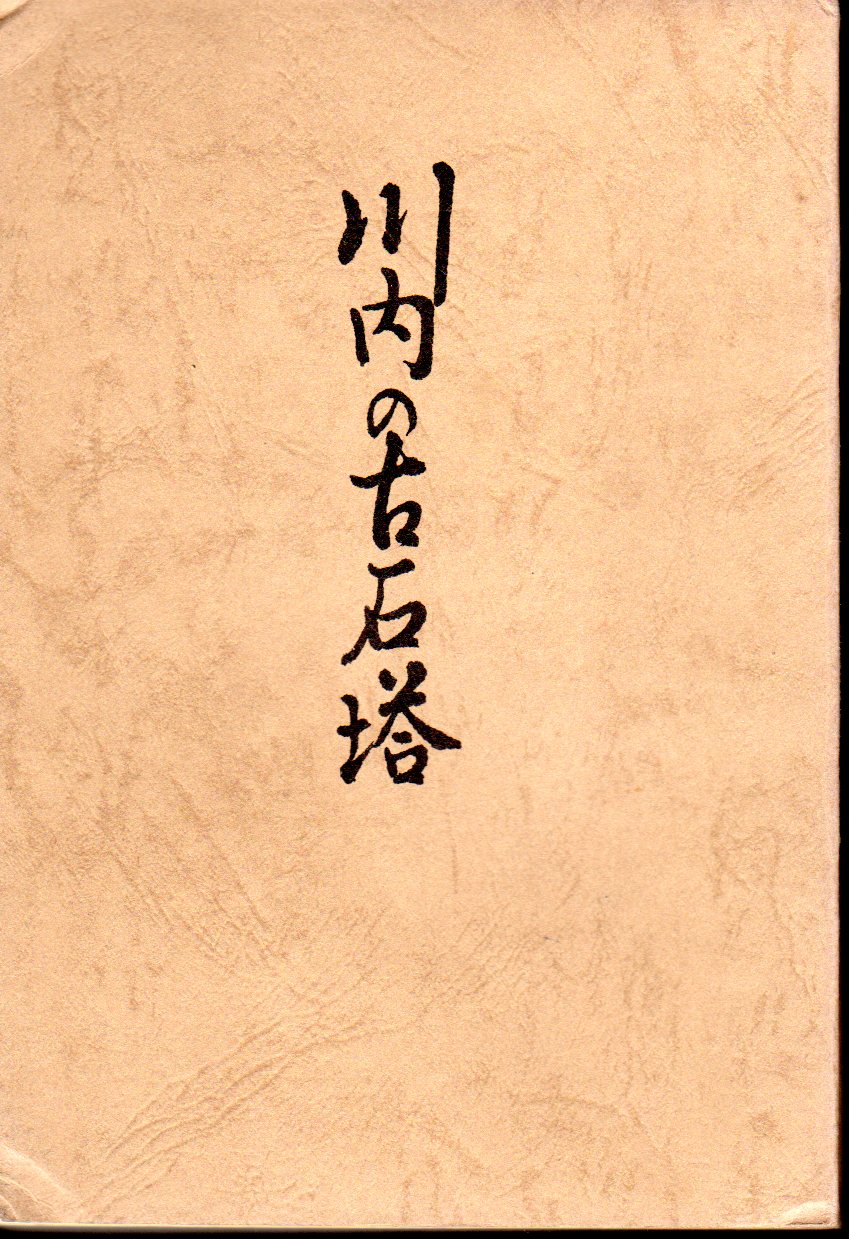 川内の古石塔